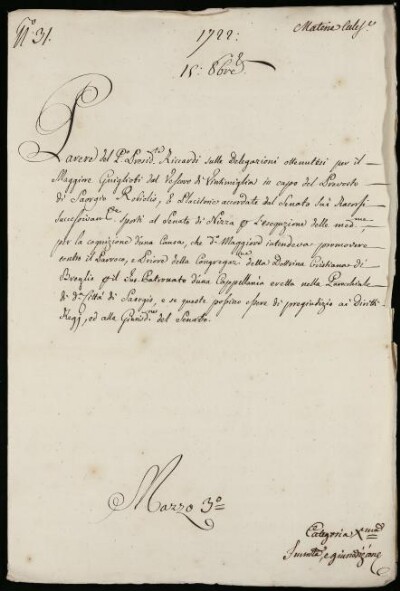 N.º 31.
Materie Eccles.e
1722:
15: 8bre
Parere del P.º Presid.te Riccardi sulle delegazioni ottenutesi per il
Maggiore Guiglioti dal Vescovo di Vintimiglia in capo del Prevosto
di Saorgio Rosiglio, e Placitorie accordate dal Senato sui Ricorsi
successivam.te sporti al Senato di Nizza per l'esequzione delle med.me
per la cognizione d'una Causa, che d.º Maggiore intendeva promovere
contro il Parroco, e Priore della Congregaz.ne della Dottrina Cristiana di
Breglio per il Jus Patronato d'una Cappellania eretta nella Parochiale
di d.ª Città di Saorgio, e se queste possino essere di pregiudizio ai Diritti
Regj, ed alla Giurisd.ne del Senato.
Mazzo 3.º
Categoria X.ma
Immtà, e giurisdizione